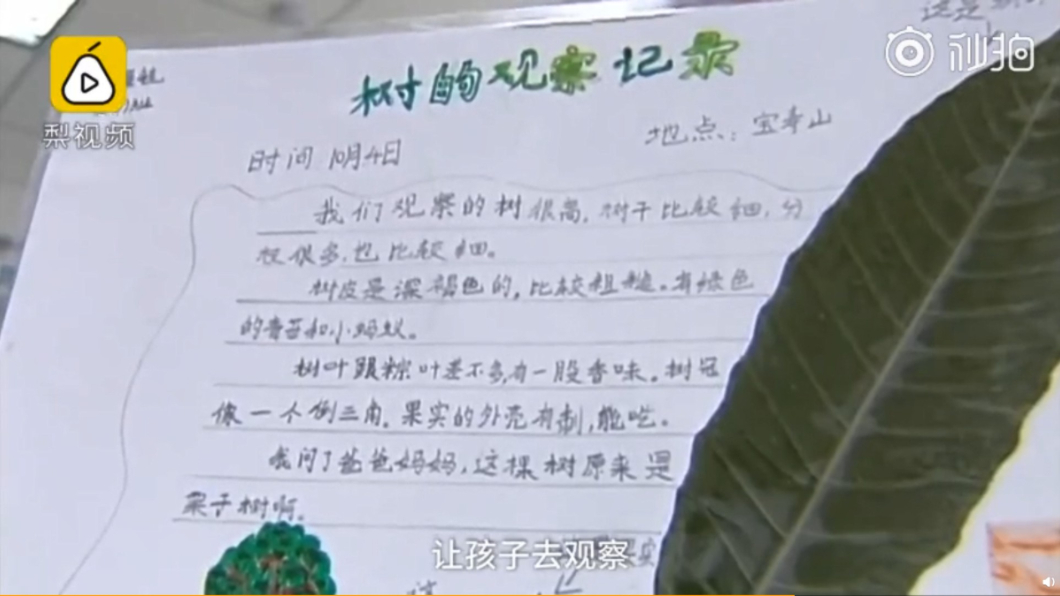 秒拍
梨视频
树的观察记录
时间 10月4日
地点：宝寿山
我们观察的树很高，树干比较细，分
杈很多，也比较细。
树皮是深褐色的，比较粗糙。有绿色
的青苔和小蚂蚁。
树叶跟粽叶差不多，有一股香味。树冠
像一个倒三角。果实的外壳有刺，能吃。
我问了爸爸妈妈，这棵树原来是
栗子树啊。
让孩子去观察